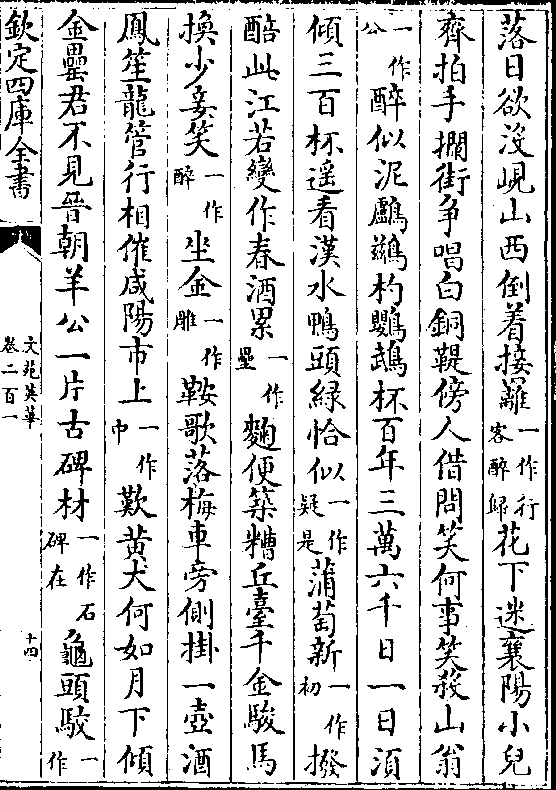 落日欲沒峴山西倒着接䍦一作行客醉歸花下迷襄陽小兒
齊拍手攔街争唱白銅鞮傍人借問笑何事笑殺山翁
一作公醉似泥鸕鷀杓鸚鵡杯百年三萬六千日一日湏
傾三百杯遥看漢水鴨頭緑恰似一作疑是蒲萄新一作初撥
醅此江若變作春酒累一作壘麴便築糟丘臺千金駿馬
換少妾笑一作醉坐金一作雕鞍歌落梅車旁側掛一壺酒
鳳笙龍管行相催咸陽市上一作巾歎黄犬何如月下傾
金罍君不見晉朝羊公一片古碑材一作石碑在龜頭駮一作
欽定四庫全書
文苑英華
卷二百一
十四